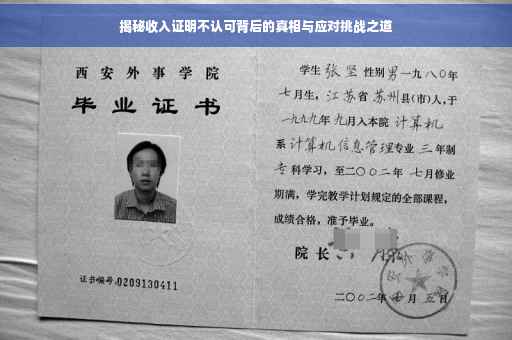 揭秘收入证明不认可背后的真相与应对挑战之道
西安外事学院
毕业证书
证书编号:0209130411
学生 张坚 性别 男 一九八〇年
七月生,江苏省 苏州县(市)人,于
一九九九年 九月入本院 计算机
系 计算机信息管理专业 三 年制
专科学习,至二〇〇二年 七月修业
期满,学完教学计划规定的全部课程,
成绩合格,准予毕业。
院长
二〇〇二年 月 五日